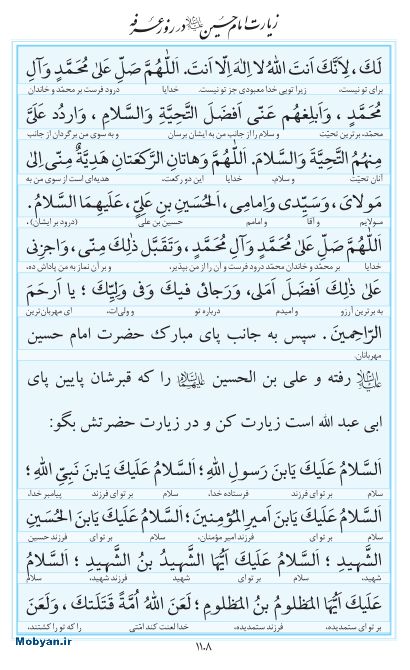 زیارت امام حسین علیه‌السلام در روز عرفه
لَكَ، لِاَنَّكَ اَنتَ اللهُ لا اِلٰهَ اِلّا اَنتَ. اَللّٰهُمَّ صَلِّ عَلىٰ مُحَمَّدٍ وَآلِ
برای تو نیست، زیرا تویی خدا معبودی جز تو نیست. خدایا درود فرست بر محمّد و خاندان
مُحَمَّدٍ، وَاَبلِغهُم عَنّی اَفضَلَ التَّحِیَّةِ وَالسَّلامِ، وَاردُد عَلَیَّ
محمّد، برترین تحیّت و سلام را از جانب من به ایشان برسان و به سوی من برگردان از جانب
مِنهُمُ التَّحِیَّةَ وَالسَّلامَ. اَللّٰهُمَّ وَهاتانِ الرَّكعَتانِ هَدِیَّةٌ مِنّی اِلىٰ
آنان تحیّت و سلام، خدایا این دو رکعت، هدیه‌ای است از سوی من به
مَولایَ، وَسَیِّدی وَاِمامِی، اَلحُسَینِ بنِ عَلِیٍّ، عَلَیهِمَا السَّلامُ.
مولایم و آقا و امامم حسین بن علی (درود بر ایشان).
اَللّٰهُمَّ صَلِّ عَلىٰ مُحَمَّدٍ وَآلِ مُحَمَّدٍ، وَتَقَبَّل ذٰلِكَ مِنّی، وَاجزِنی
خدایا بر محمّد و خاندان محمّد درود فرست و آن را از من بپذیر، و بر آن نماز به من پاداش ده،
عَلىٰ ذٰلِكَ اَفضَلَ اَمَلی، وَرَجائی فیكَ وَفی وَلِیِّكَ؛ یا اَرحَمَ
به برترین آرزو و امیدم درباره تو و ولی‌ات، ای مهربان‌ترین
الرّاحِمینَ. سپس به جانب پای مبارک حضرت امام حسین
مهربانان.
علیه‌السلام رفته و علی بن الحسین علیهماالسلام را که قبرشان پایین پای
ابی عبد الله است زیارت کن و در زیارت حضرتش بگو:
اَلسَّلامُ عَلَیكَ یَابنَ رَسولِ اللهِ؛ اَلسَّلامُ عَلَیكَ یَابنَ نَبِیِّ اللهِ؛
سلام بر تو ای فرزند فرستاده خدا، سلام بر تو ای فرزند پیامبر خدا،
اَلسَّلامُ عَلَیكَ یَابنَ اَمیرِ المُؤمِنینَ؛ اَلسَّلامُ عَلَیكَ یَابنَ الحُسَینِ
سلام بر تو ای فرزند امیر مؤمنان، سلام بر تو ای فرزند حسین
الشَّهیدِ؛ اَلسَّلامُ عَلَیكَ اَیُّهَا الشَّهیدُ بنُ الشَّهیدِ؛ اَلسَّلامُ
شهید، سلام بر تو ای شهید فرزند شهید، سلام
عَلَیكَ اَیُّهَا المَظلومُ بنُ المَظلومِ؛ لَعَنَ اللهُ اُمَّةً قَتَلَتكَ، وَلَعَنَ
بر تو ای ستمدیده فرزند ستمدیده، خدا لعنت کند امّتی را که تو را کشتند،
۱۱۰۸
Mobyan.ir